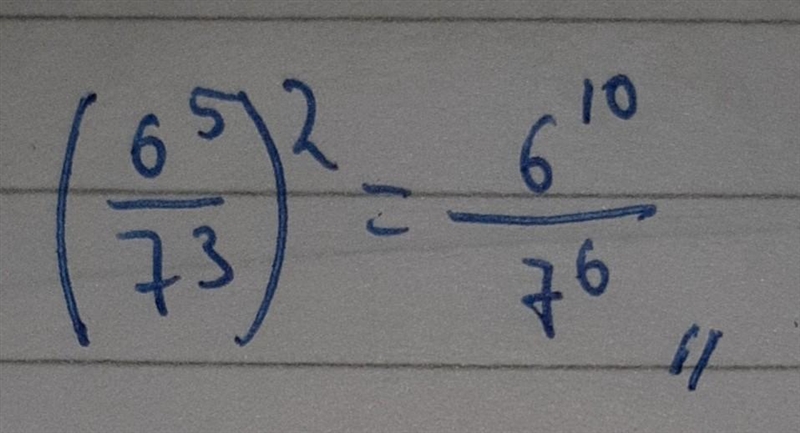 (6⁵/7³)² = 6¹⁰/7⁶ //